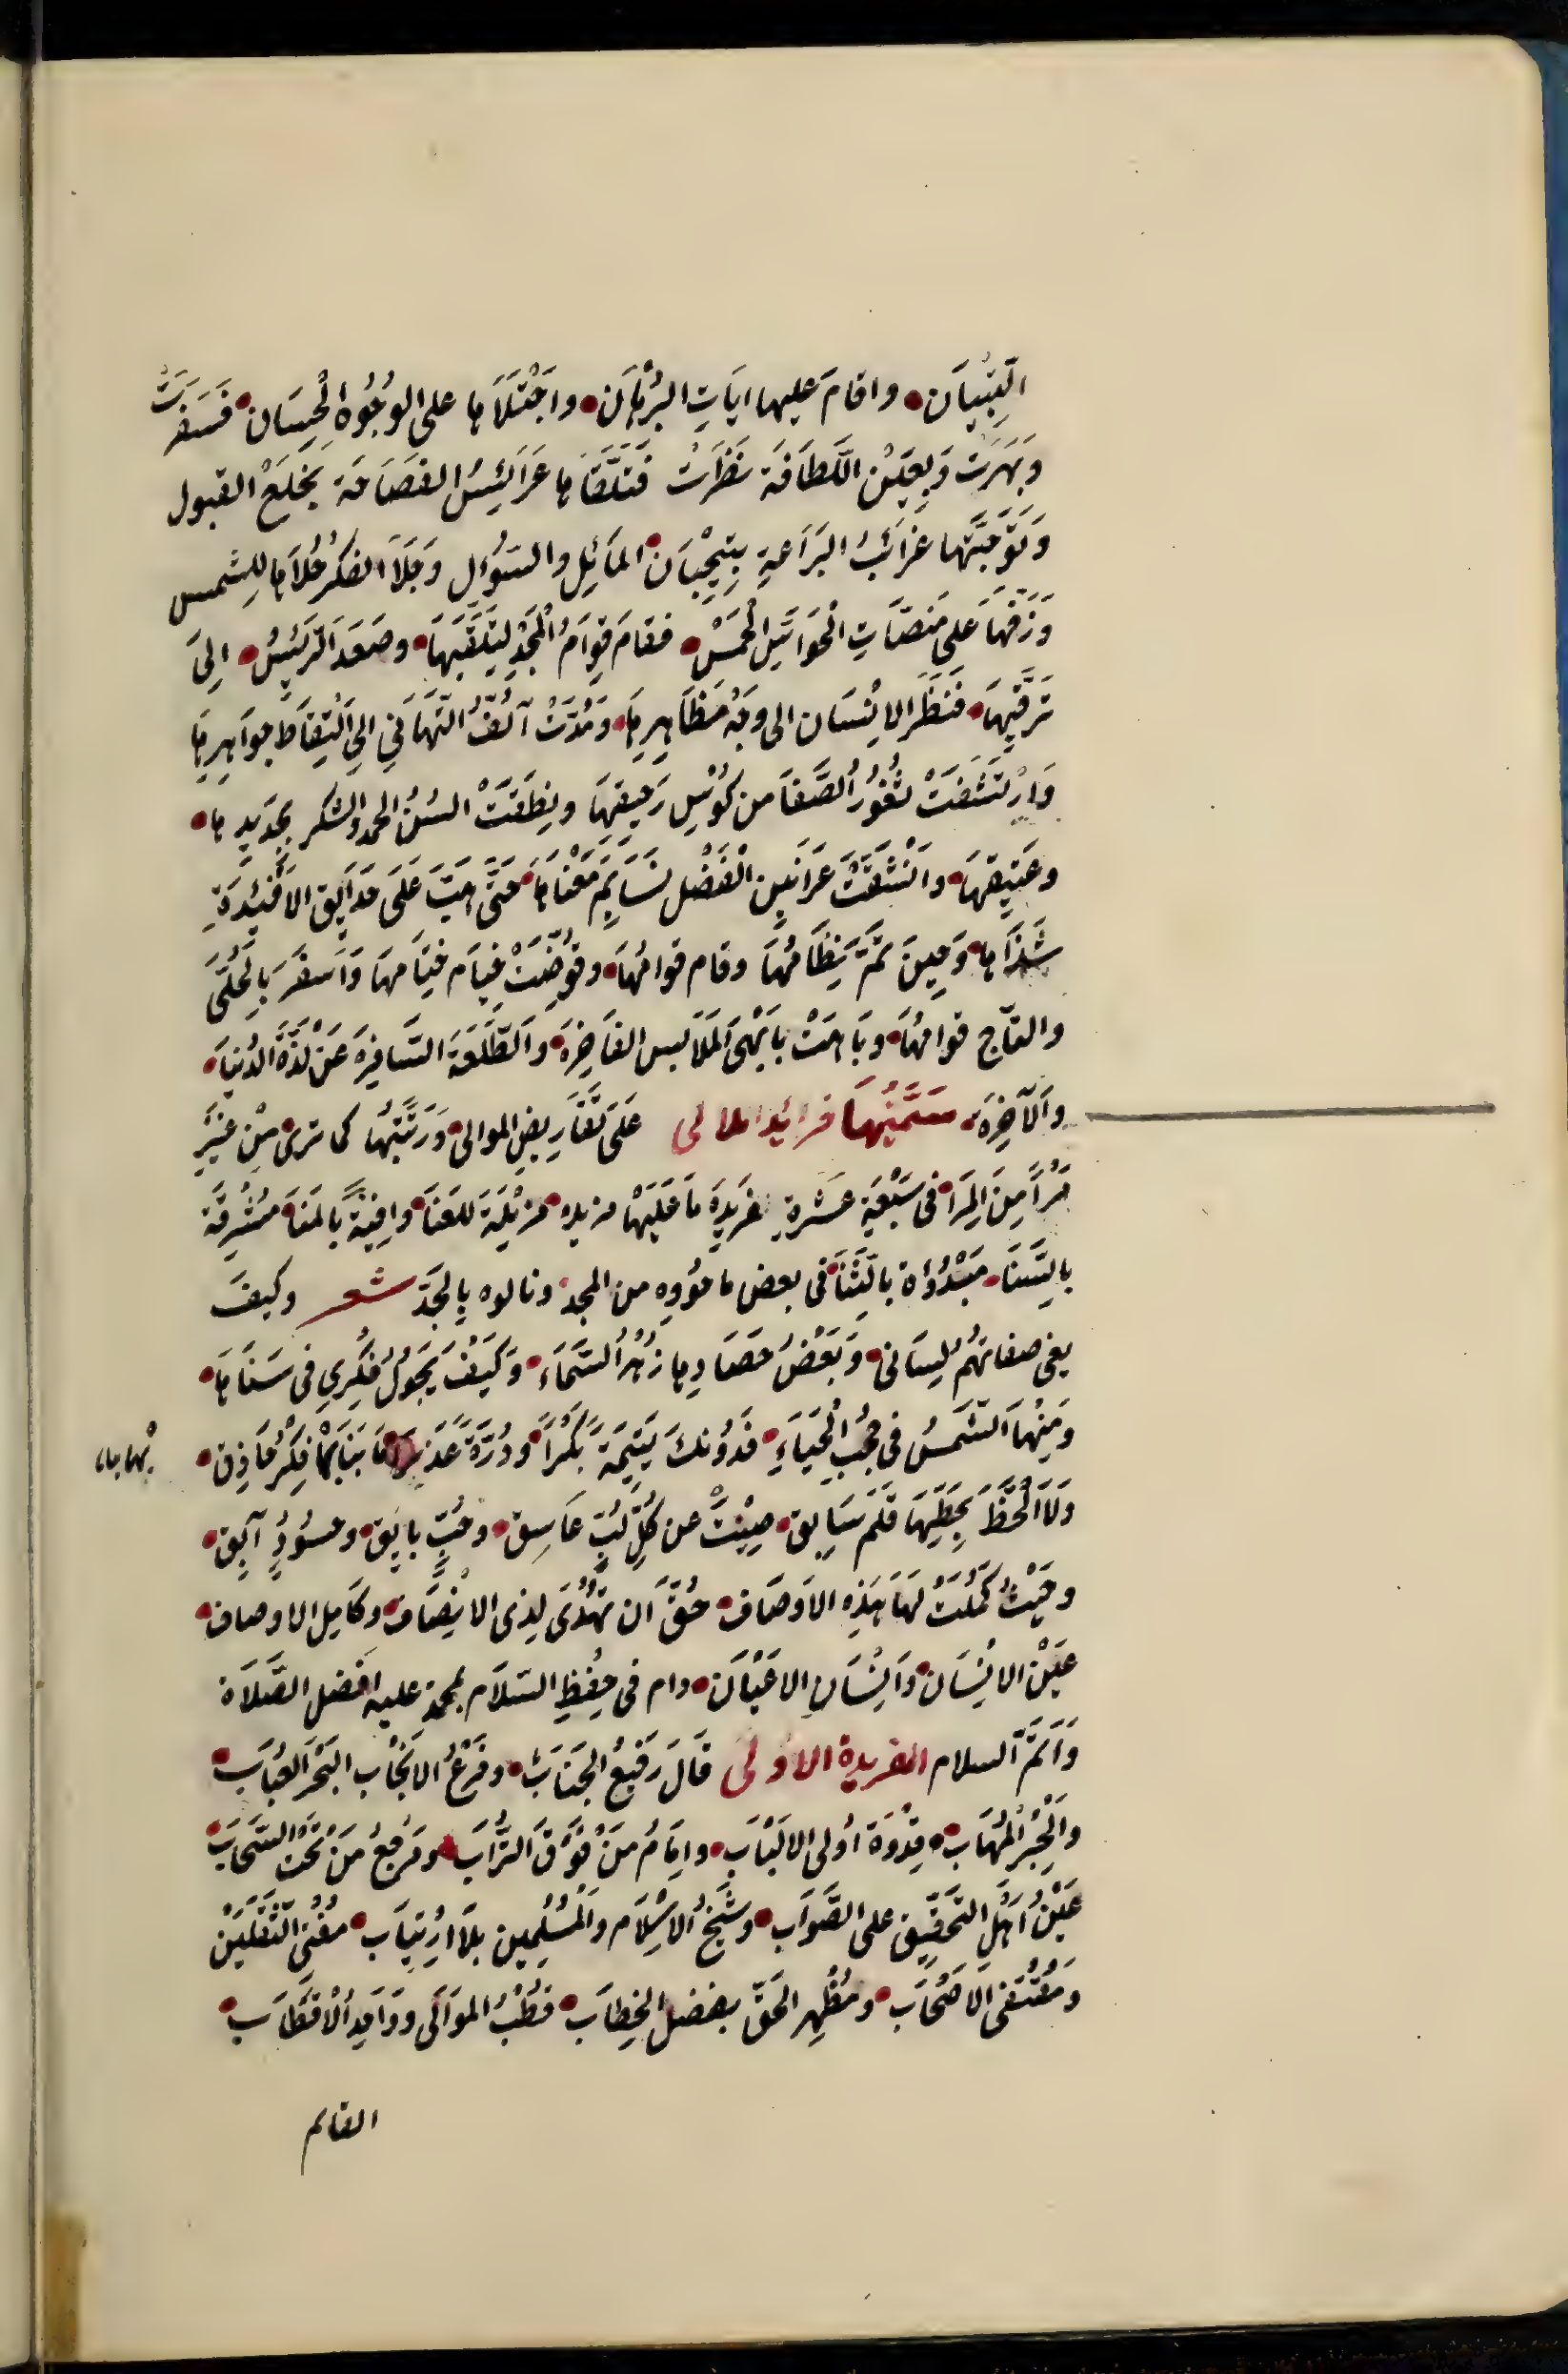 التِبْيَان • واقامَ عليها ايَاتِ البُرْهَان • واجْتَلَاهَا على الوُجُوْهِ الْحِسَان • فَسَفَرَتْ
وَبَهَرَتْ وَبِعَيْنِ اللَّطَافَة نَظَرَتْ فَتَلَقَّاهَا عَرَائِسُ الفَصَاحَة بِخِلَعْ القبول
وَتَوَّجَتْها غَرَائبُ البَرَاعَةِ بِتِيْجَانْ • المَائِل والسُؤالِ وَجَلَا الفكرُ حُلَاهَا لِلشمس
وَزَفّهَا عَلى مَنصَّاتِ الْحَوَاسِ الْخَمْسْ • فقامَ قِوَامُ الْمَجْدِ لِيَتَلَقَّيَهَا • وصَعَدَ الرَئِيْسُ • اِلَى
تَرَقِّيْهَا • فَنَظَرَ الاِنْسَان الى وَجْهِ مَظَاهِرِهَا • وَمُدَّتْ اَكُفُّ التَّهَانِي اِلىَ اِلْتِقَاطَ جَوَاهِرِهَا
وَارْتَشَفَتْ ثُغُوْرُ الصَّفَا من كُؤُسِ رَحِيقِهَا ونِطَقَتْ السُنُ الحمد والشكر بجَدِيدِهَا •
وعَتِيْقِهَا • وانْتَشَقَتْ عَرَانِينَ الْفَضْلِ نَسَايِمَ مَعْنَاهَا • حَتَّى هَبَّتَ عَلَى حَدَايِق الاَفْئِدَةِ
شَذَاهَا • وَحِينَ تَمَّ نِظَامُهَا وقام قوامُهَا • وقُوِّضَتْ خِيَام خِتَامهَا وَاَسفَرَ بِالحُلَى
والتّاجِ قوامُهَا • وبَاهَتْ بِابْهَى الْمَلَابس الفَاخِرَة • والطَّلْعَةَ السَّافِرَة عَنْ لَذَّةِ الدُنيَا •
والآخِرَة • سَمَّيْتُهَا فرائد اللالى عَلَى تَقَارِيضِ الموالى • وَرَتَّبْتُهَا كما ترى مِنْ غَيْرِ
مِرَآءٍ مِنَ المِرَا • فى سَبْعَةِ عَشْرَةِ فَرِيْدَةٍ مَا عَلَيْهَا مزيد • مزِيْلَة للعَنَا • وافِيَةً بالمَنَا • مشْرِقَة
بالسَّنَا • مَبْدُوْاَة بالثَّنَا • فى بعض ما حَوُوه من المجد • ونالوه بِالجَدّ شعر وكيفَ
يفى صفاتُهُم لِسَانى • وَبَعْضُ حَصَادِهَا زُهْرُ السَّمَاءِ • وَكَيْفَ يَجُولُ فِكْرِي فى سَنَاهَا •
وَمِنْهَا الشَّمسُ فى حُجُبِ الْحَيَاءِ • فَدُوْنَكَ يَتِيْمَةً بِكْراً • ودُرَّةً عَذْرَا • مَا بَنَاهَا فِكْرُ حَاذِق •
بها بناها
وَلَا الْحَظَّ بِخَطِّهَا قَلَم سَابِق • صِيْنَتْ عن كُلِّ لُبٍّ عَاسِق • وحُبِّ بايِق • وحسُوْدٍ آبِق •
وحَيْثُ كَمُلَتْ لَهَا هَذِه الاَوصَاف • حُقَّ اَن تُهْدَى لِذى الاِنْصَاف • وكَامِل الاوصاف •
عيْن الاِنْسَان • وَاِنْسَانِ الاعْيَان • دام فى حِفْظِ السَلَام بمحمد عليه افضل الصَّلَاة
وَاَتَمَّ السلام الفريدة الاولى قَالَ رَفِيعُ الجَنَابْ • وفَرْعُ الاَنْجَاب البَحْرُ العُبَاب •
والْحِبْرُ المُهَاب • قِدْوَة اُولى الالْبَاب • وامَامُ مَنْ فَوْقَ التُّرَاب • ومَرْجعُ مَنْ تَحْت السَّحَاب •
عَيْنُ اَهْلِ التَّحْقِيْق على الصَّوَاب • وشَيْخُ الاِسْلَام والْمُسْلِمِين بِلَا ارْتِيَاب • مُفْتى الثَّقَلَيْن
ومُقْتَفى الاَصْحَاب • ومُظْهِر الحَقّ بفضل الخِطاب • قُطْبُ المَوَالى وَوَاحِدُ الْاَقْطَاب •
القائم